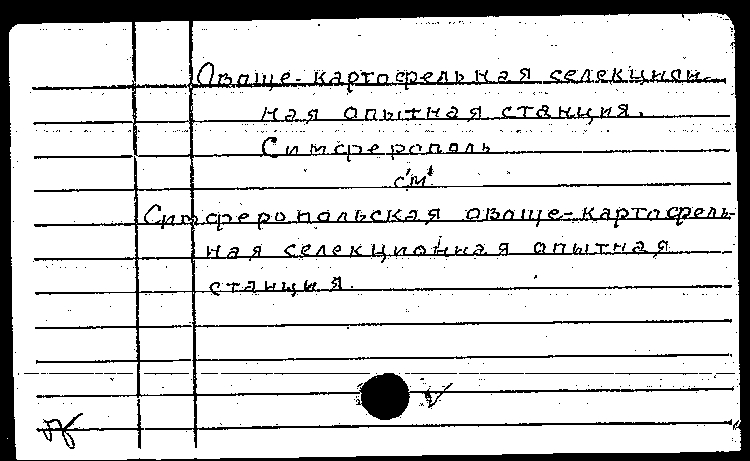 Овоще-картофельная селекцион-
ная опытная станция.
Симферополь
см.
Симферопольская овоще-картофель-
ная селекционная опытная
станция.